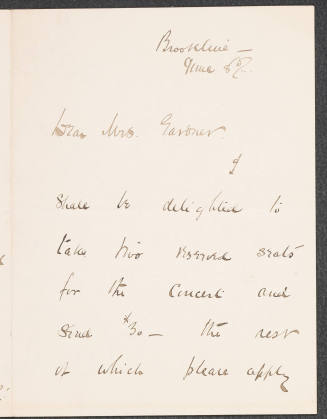 Brookline —
June 8th.
Dear Mrs. Gardner.
I
shall be delighted to
take two reserved seats
for the Concert and
send $30 — the rest
of which please apply